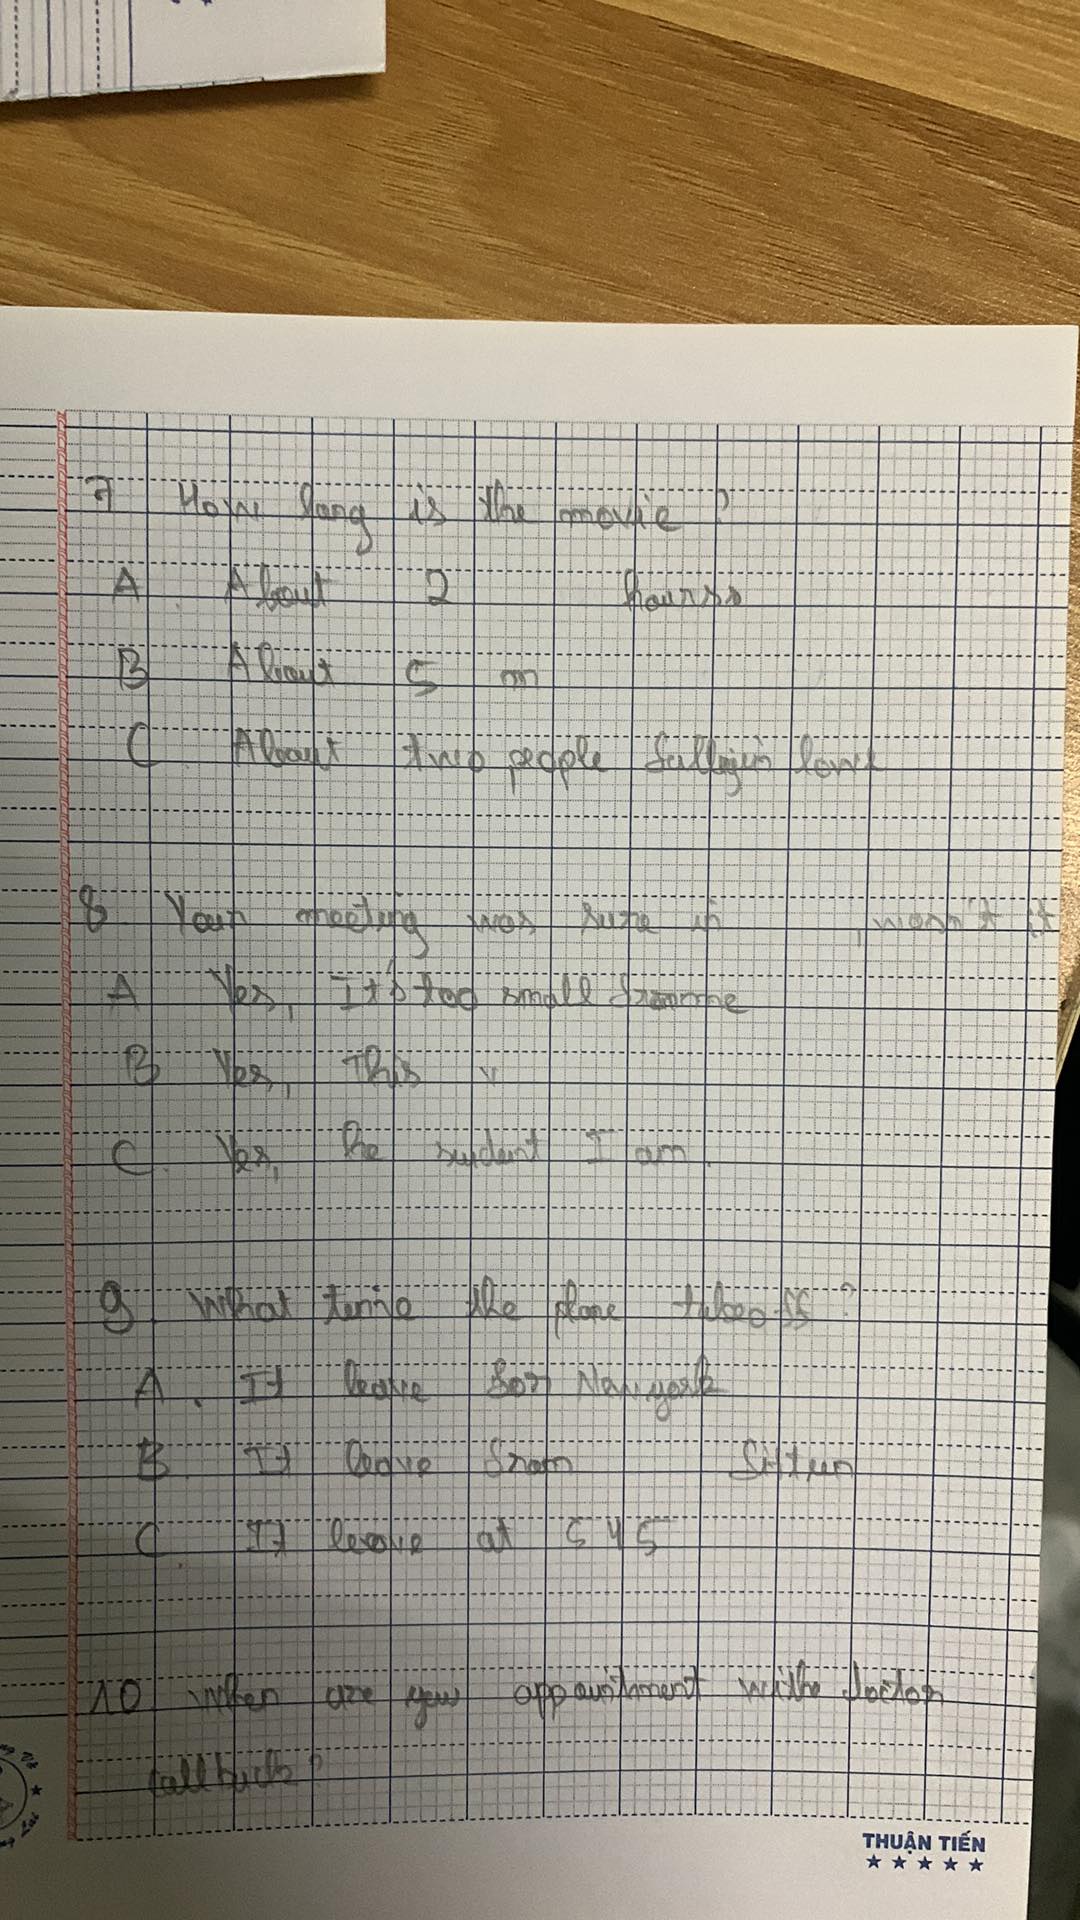 7 How long is the movie ?
A About 2 hourss
B About 5 m
C. About two people fallingin love
8 Your meeting was sure in , wasn't it
A Yes, It's too small
B Yes, This v
C. Yes, he sudent I am.
9 What the plane ?
A. It leave for Newyork
B. It leave from
C. It leave at 5 45
10 When are you with doctor
THUẬN TIẾN